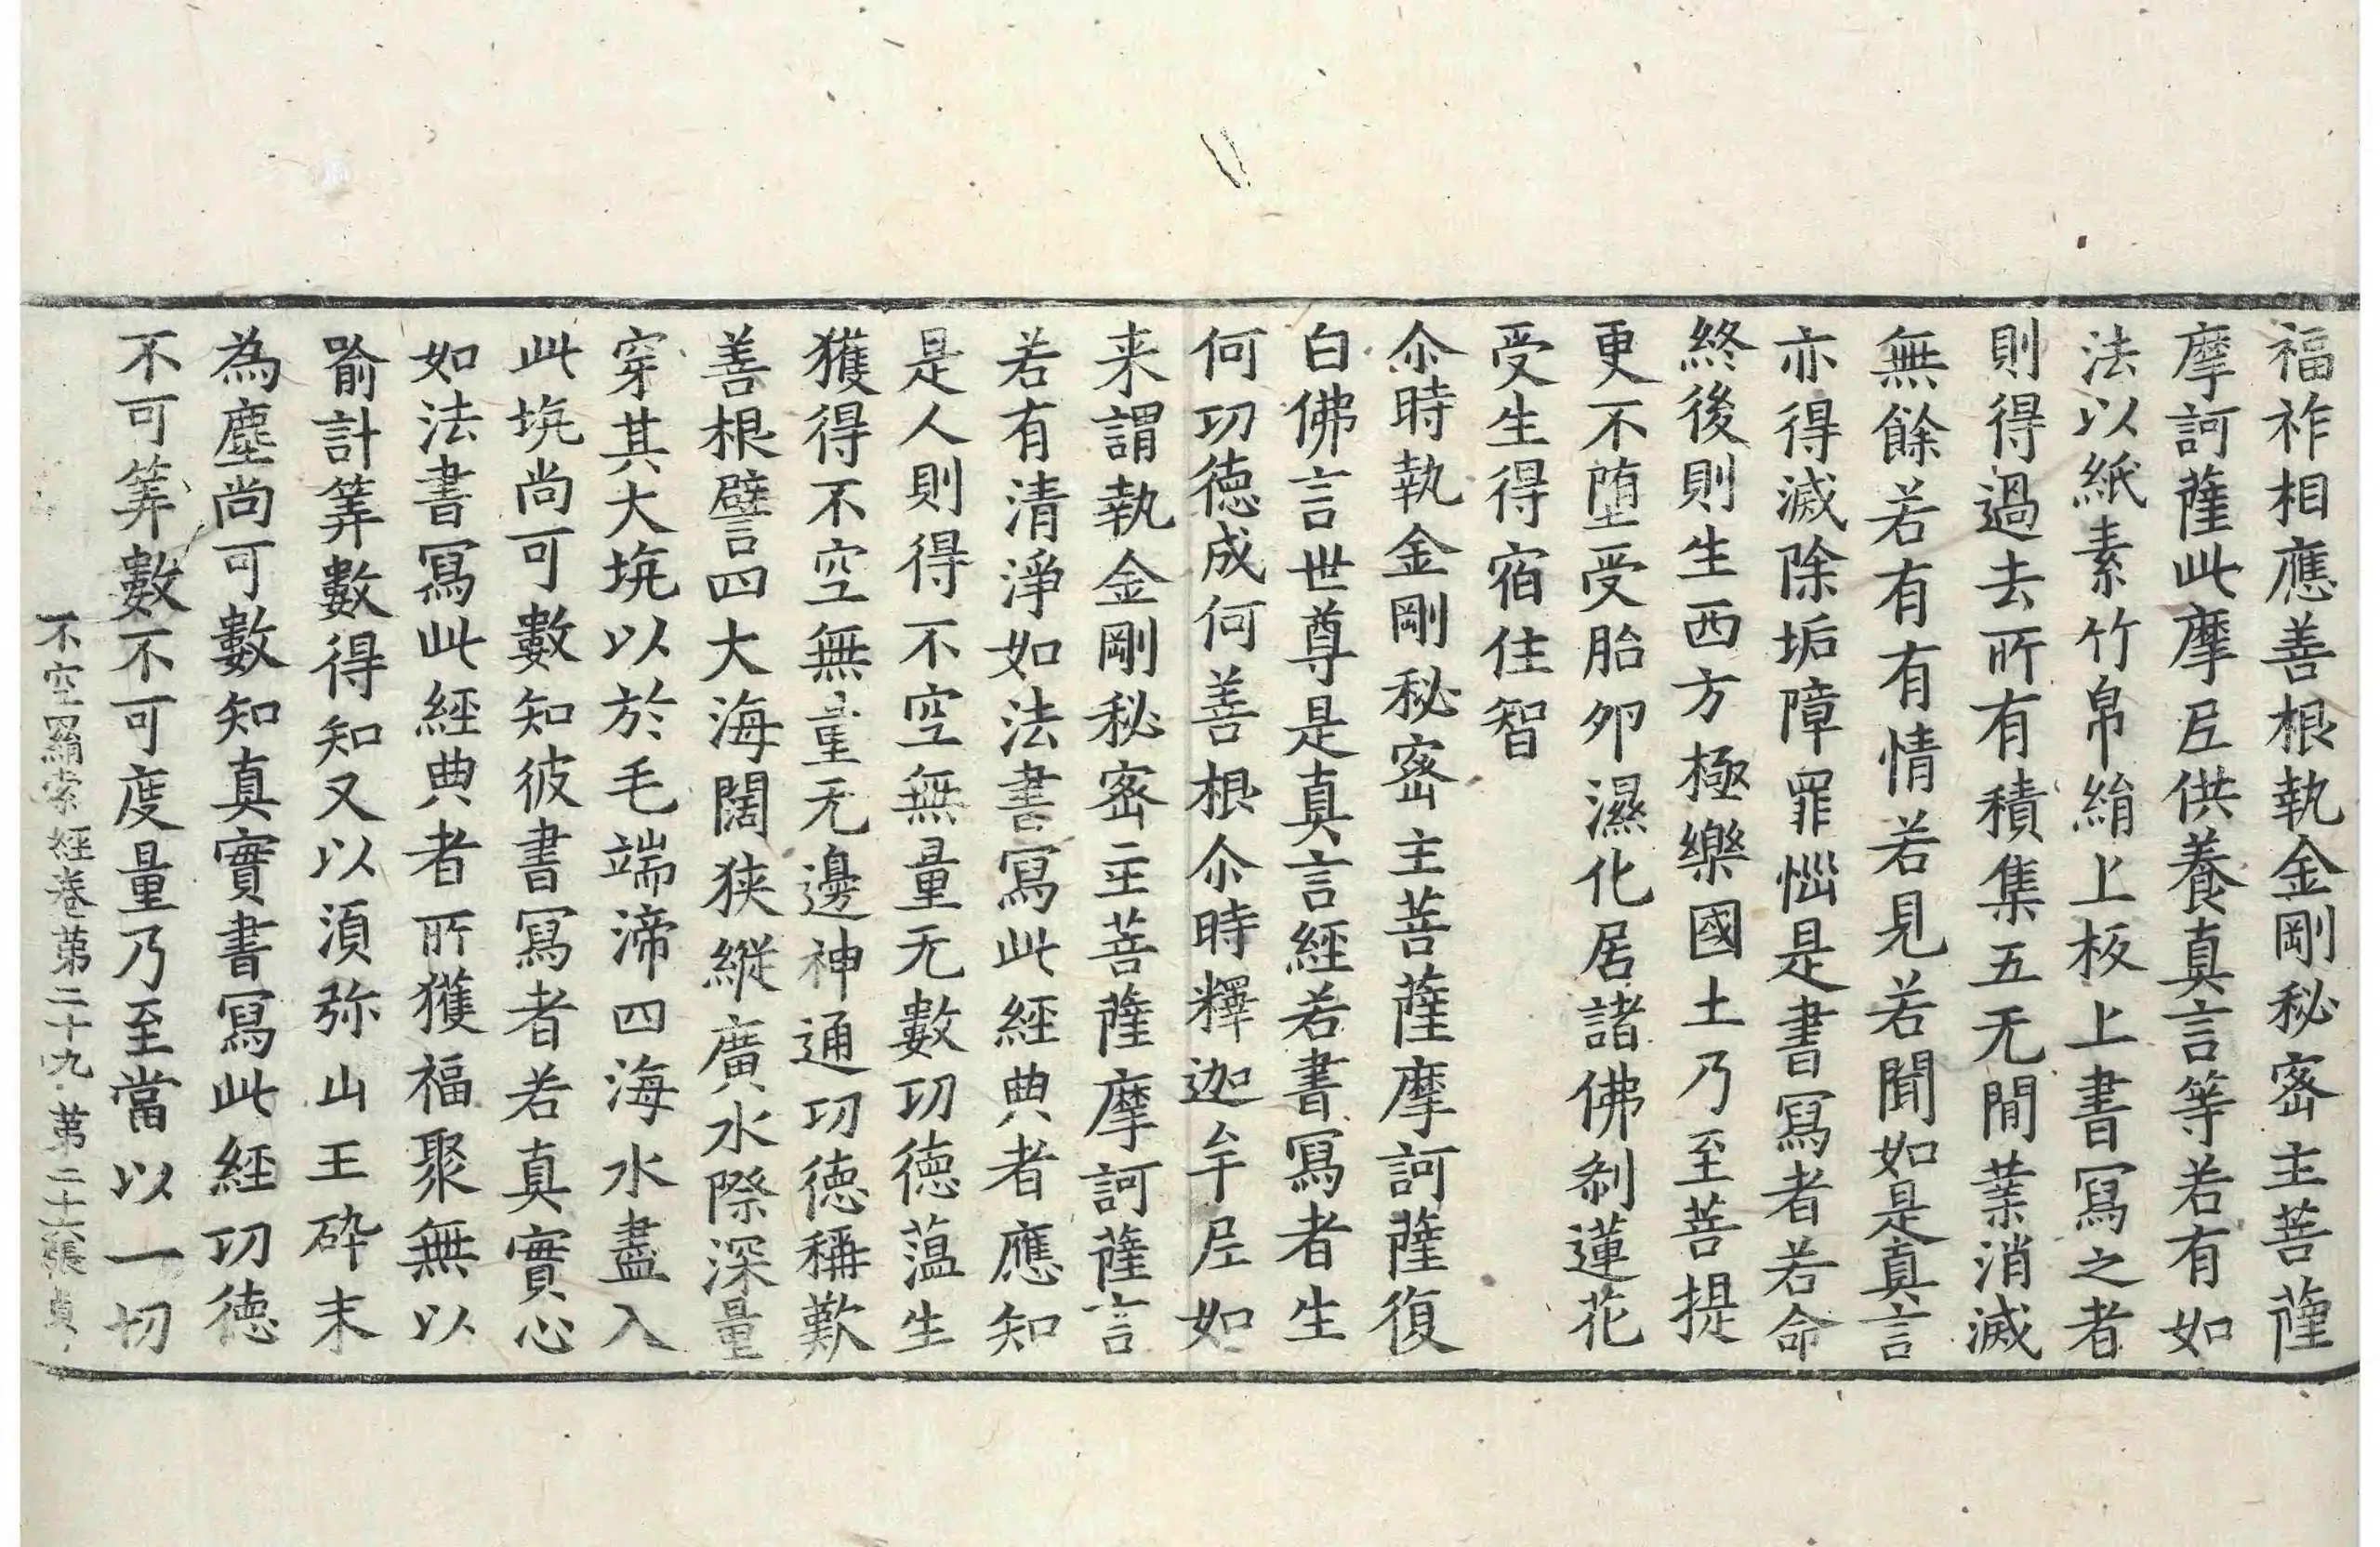 福祚相應善根執金剛秘密主菩薩
摩訶薩此摩尼供養真言等若有如
法以紙素竹帛絹上板上書寫之者
則得過去所有積集五无間業消滅
無餘若有有情若見若聞如是真言
亦得滅除垢障罪惱是書寫者若命
終後則生西方極樂國土乃至菩提
更不堕受胎卵濕化居諸佛刹蓮花
受生得宿住智
尒時執金剛秘密主菩薩摩訶薩復
白佛言世尊是真言經若書寫者生
何功徳成何善根尒時釋迦牟尼如
来謂執金剛秘密主菩薩摩訶薩言
若有清淨如法書寫此經典者應知
是人則得不空無量无數功徳藴生
獲得不空無量无邊神通功徳稱歎
善根譬四大海闊狹縱廣水際深量
穿其大坑以於毛端渧四海水盡入
此坑尚可數知彼書寫者若真實心
如法書寫此經典者所獲福聚無以
喻計筭數得知又以須弥山王碎末
為塵尚可數知真實書寫此經功徳
不可筭數不可度量乃至當以一切
不空羂索經卷第二十九 第二十六張 貞